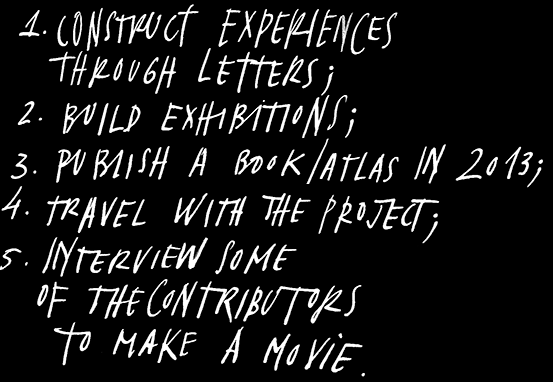 1. CONSTRUCT EXPERIENCES
THROUGH LETTERS;
2. BUILD EXHIBITIONS;
3. PUBLISH A BOOK/ATLAS IN 2013;
4. TRAVEL WITH THE PROJECT;
5. INTERVIEW SOME
OF THE CONTRIBUTORS
TO MAKE A MOVIE.